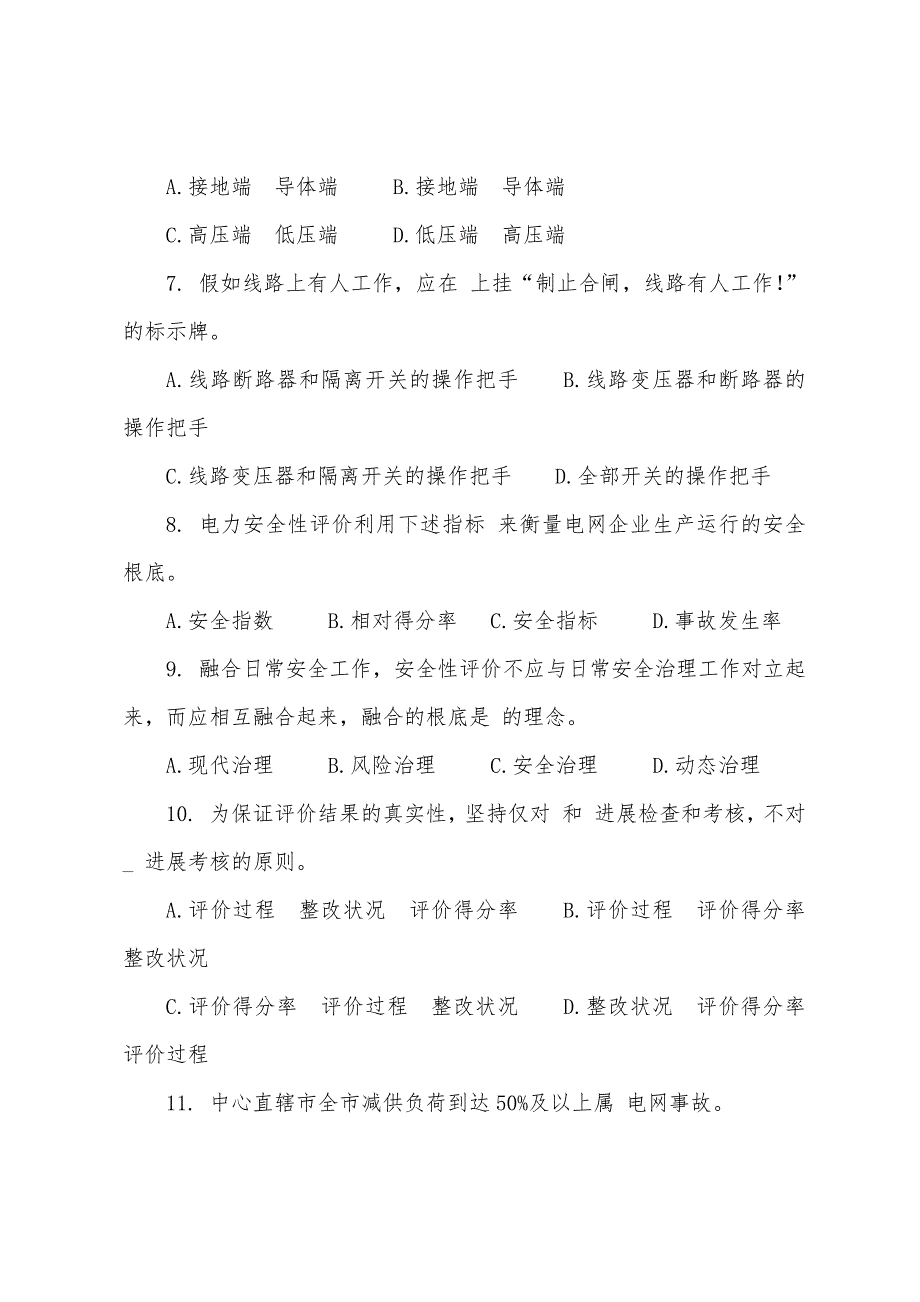 A.接地端　导体端　　B.接地端　导体端
C.高压端　低压端　　D.低压端　高压端
7. 假如线路上有人工作，应在 上挂“制止合闸，线路有人工作！”
的标示牌。
A.线路断路器和隔离开关的操作把手　　B.线路变压器和断路器的
操作把手
C.线路变压器和隔离开关的操作把手　　D.全部开关的操作把手
8. 电力安全性评价利用下述指标 来衡量电网企业生产运行的安全
根底。
A.安全指数　　B.相对得分率　C.安全指标　　D.事故发生率
9. 融合日常安全工作，安全性评价不应与日常安全治理工作对立起
来，而应相互融合起来，融合的根底是 的理念。
A.现代治理　　B.风险治理　　C.安全治理　　D.动态治理
10. 为保证评价结果的真实性，坚持仅对 和 进展检查和考核，不对
_ 进展考核的原则。
A.评价过程　整改状况　评价得分率　　B.评价过程　评价得分率
整改状况
C.评价得分率　评价过程　整改状况　　D.整改状况　评价得分率
评价过程
11. 中心直辖市全市减供负荷到达50%及以上属 电网事故。